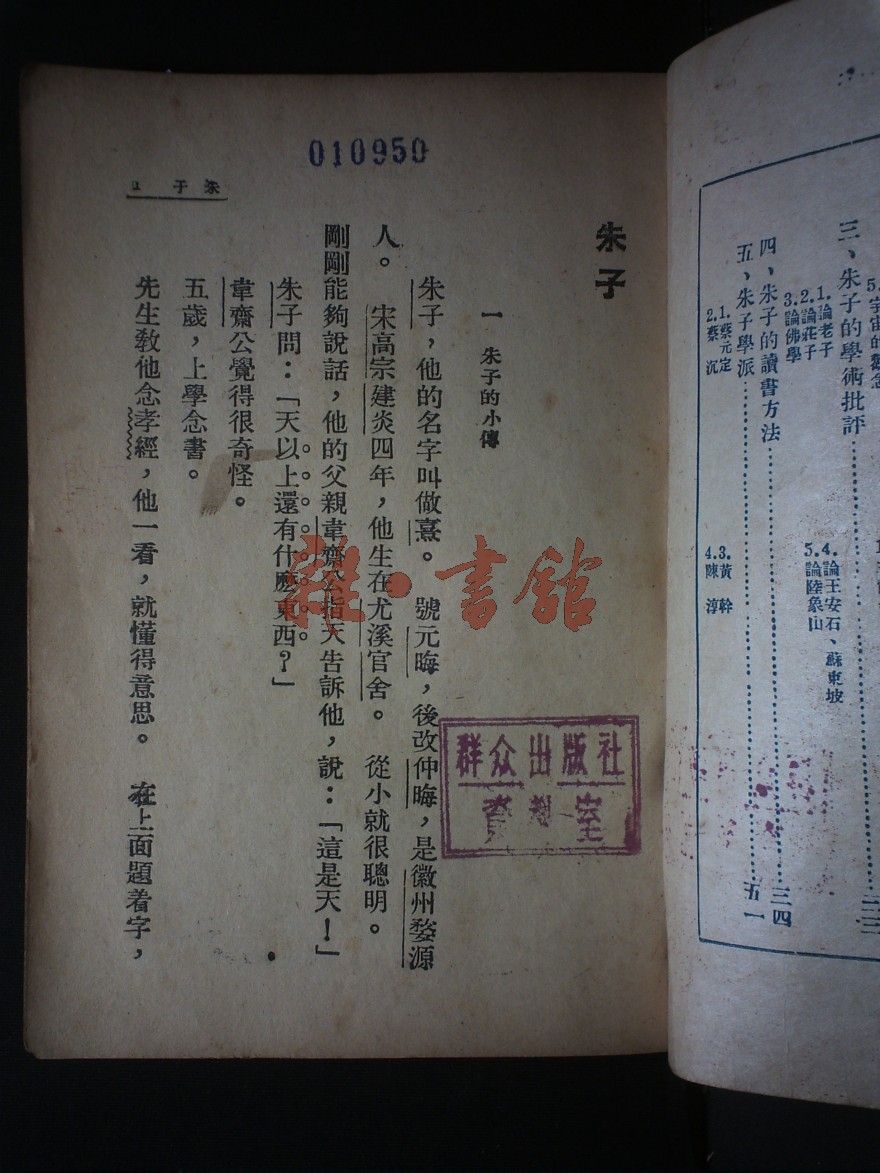 三、朱子的學術批評…………三三
1.論老子
2.論莊子
3.論佛學
4.論王安石、蘇東坡
5.論陸象山
四、朱子的讀書方法…………三四
五、朱子學派…………五一
1.蔡元定
2.蔡沉
3.黃幹
4.陳淳
010950
朱子 1
朱子
一 朱子的小傳
朱子，他的名字叫做熹。號元晦，後改仲晦，是徽州婺源
人。宋高宗建炎四年，他生在尤溪官舍。從小就很聰明。
剛剛能夠說話，他的父親韋齋公指天告訴他，說：「這是天！」
朱子問：「天以上還有什麽東西？」
韋齋公覺得很奇怪。
五歲，上學念書。
先生敎他念孝經，他一看，就懂得意思。在上面題着字，
群众出版社
資料室
雜·書館